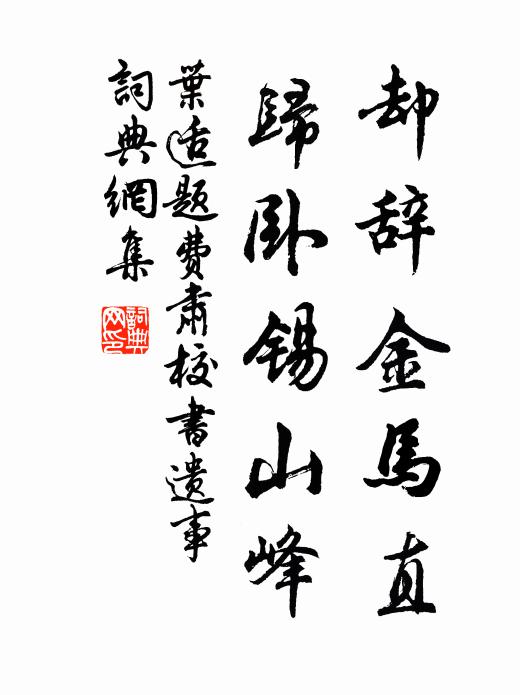 却辞金馬直
歸卧錫山峰
葉适題費肅校書遺事
詞典網集
詞典网印